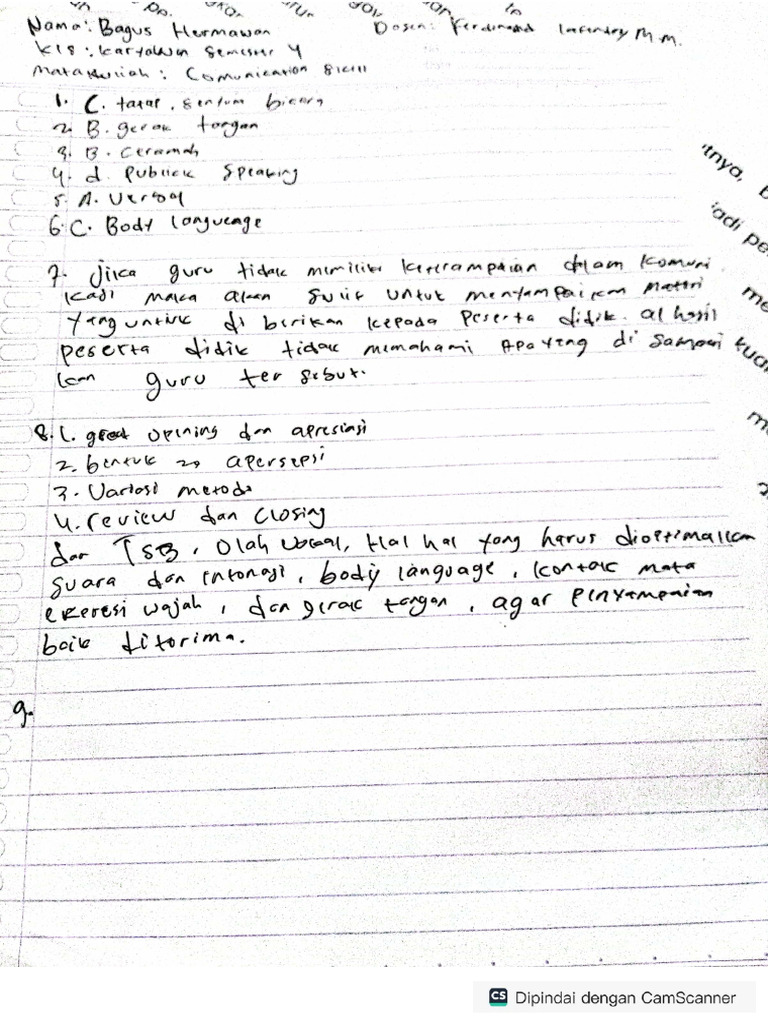 Nama : Bagus Hermawan Dosen : Ferdinand M.M.
Kls : Karyawan Semester 4
Mata Kuliah : Comunication Skill
1. C. tatap, senyum bicara
2. B. gerak tangan
3. B. Ceramah
4. d. Publick Speaking
5. A. Verbal
6. C. Body Langueage
7. Jika guru tidak memiliki keterampaian dalam Komuni
kasi maka akan sulit untuk menyampaikan materi
yang untuk di berikan kepada Peserta didik. al hasil
peserta didik tidak memahami apa yang di sampai
kan guru ter sebut.
8. 1. great opening dan apresiasi
2. bentuk apersepsi
3. Variasi metode
4. review dan Closing
dan TSB, Olah vocal, Hal hal yang harus dioptimalkan
suara dan intonasi, body language, kontak mata
ekspresi wajah, dan gerak tangan, agar penyampaian
baik diterima.
9.
tnya,
adi pe
me
kua
m
CS Dipindai dengan CamScanner